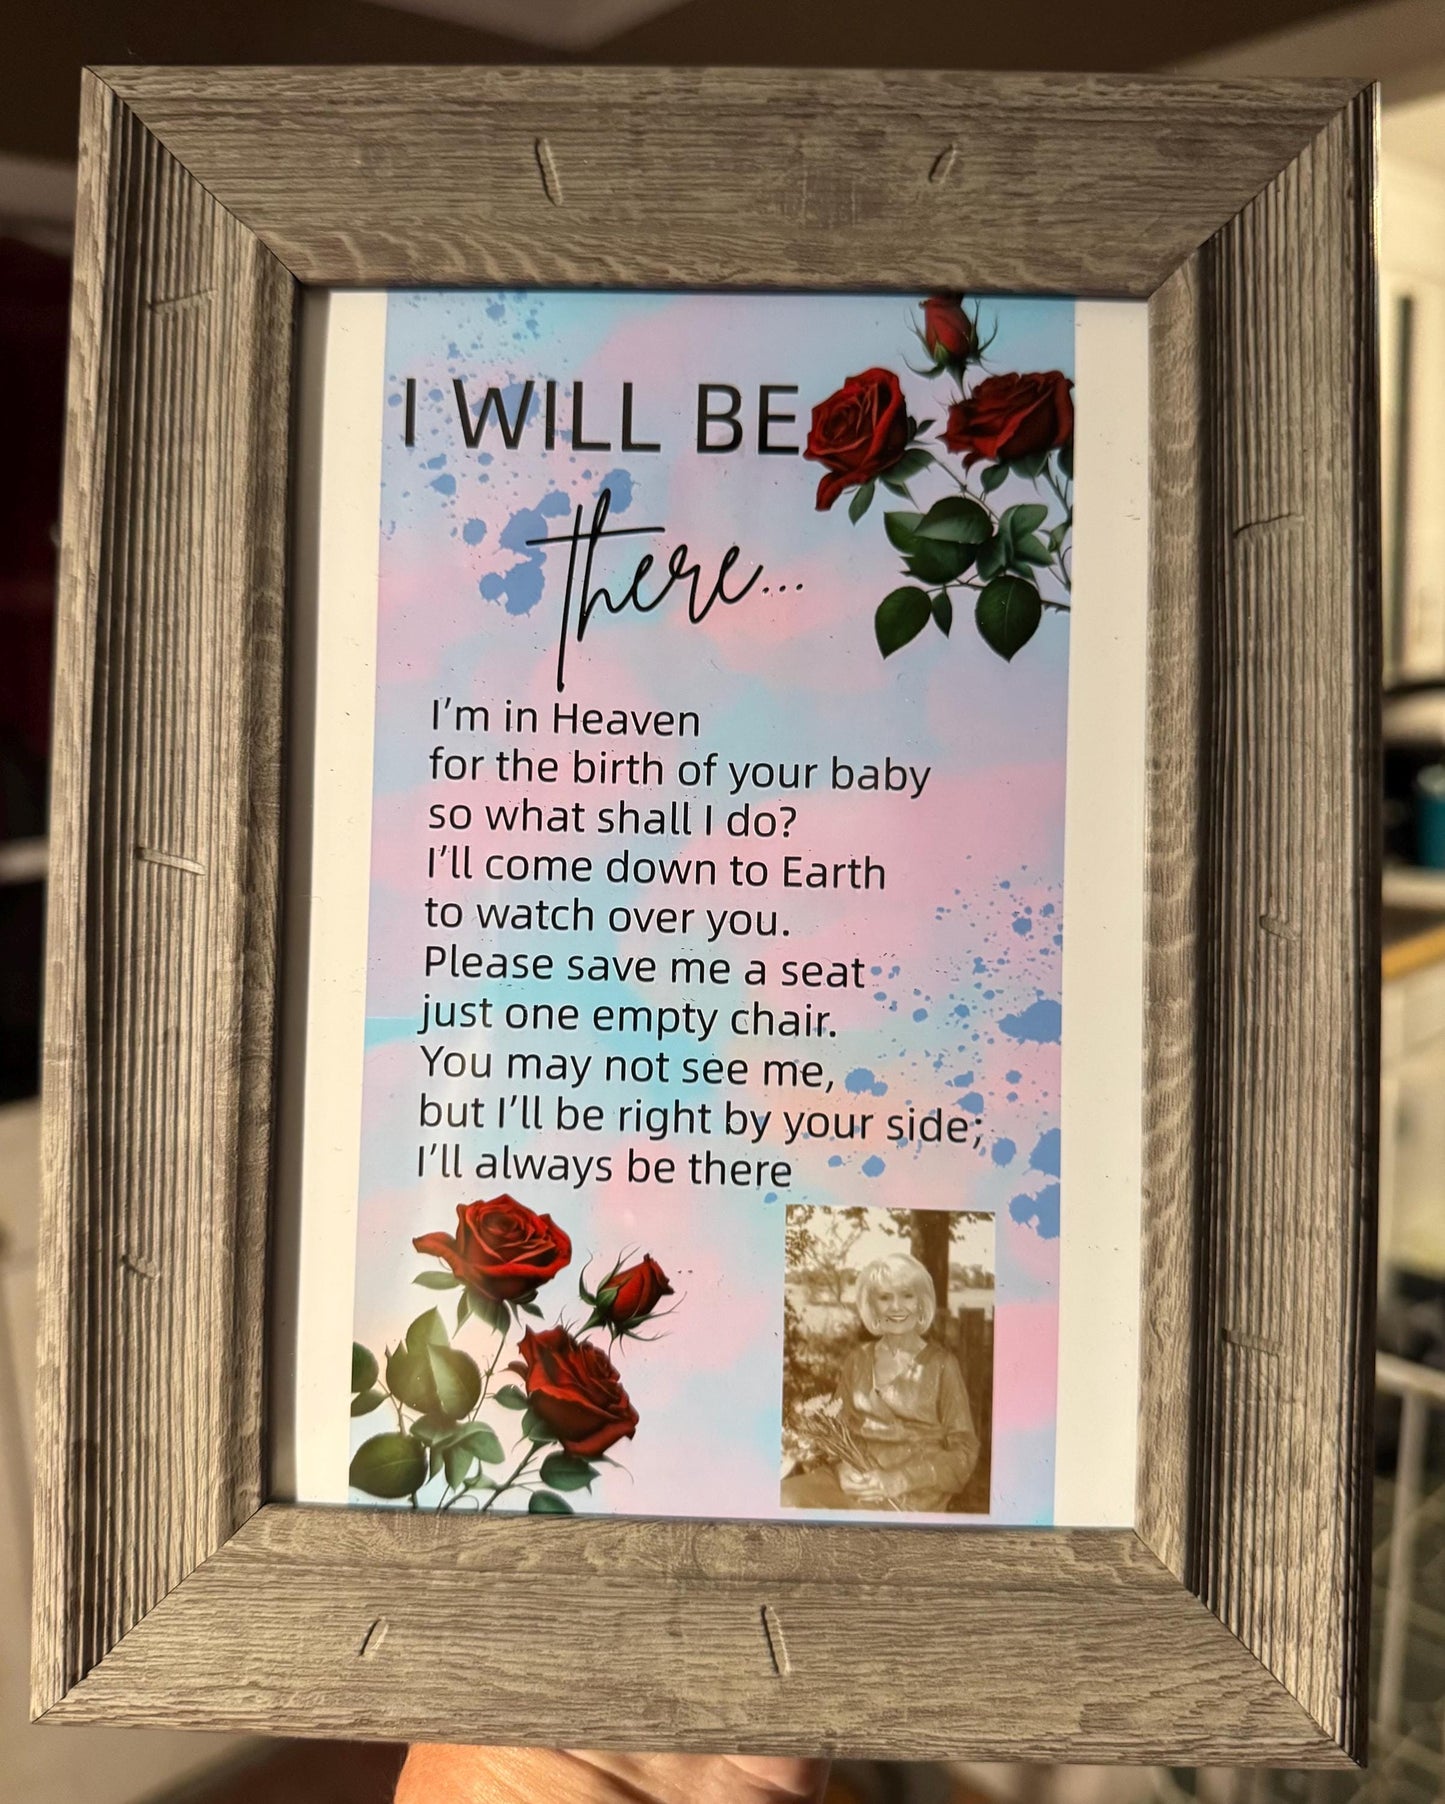 I WILL BE
there...
I'm in Heaven
for the birth of your baby
so what shall I do?
I'll come down to Earth
to watch over you.
Please save me a seat
just one empty chair.
You may not see me,
but I'll be right by your side;
I'll always be there